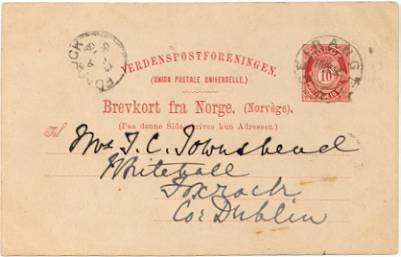 VERDENSPOSTFORENINGEN.
(UNION POSTALE UNIVERSELLE.)
NORGE
10
Brevkort fra Norge. (Norvège.)
(Paa denne Side skrives kun Adressen.)
Til
Mrs T. C. Townshend
Whitehall
Foxrock
Co: Dublin